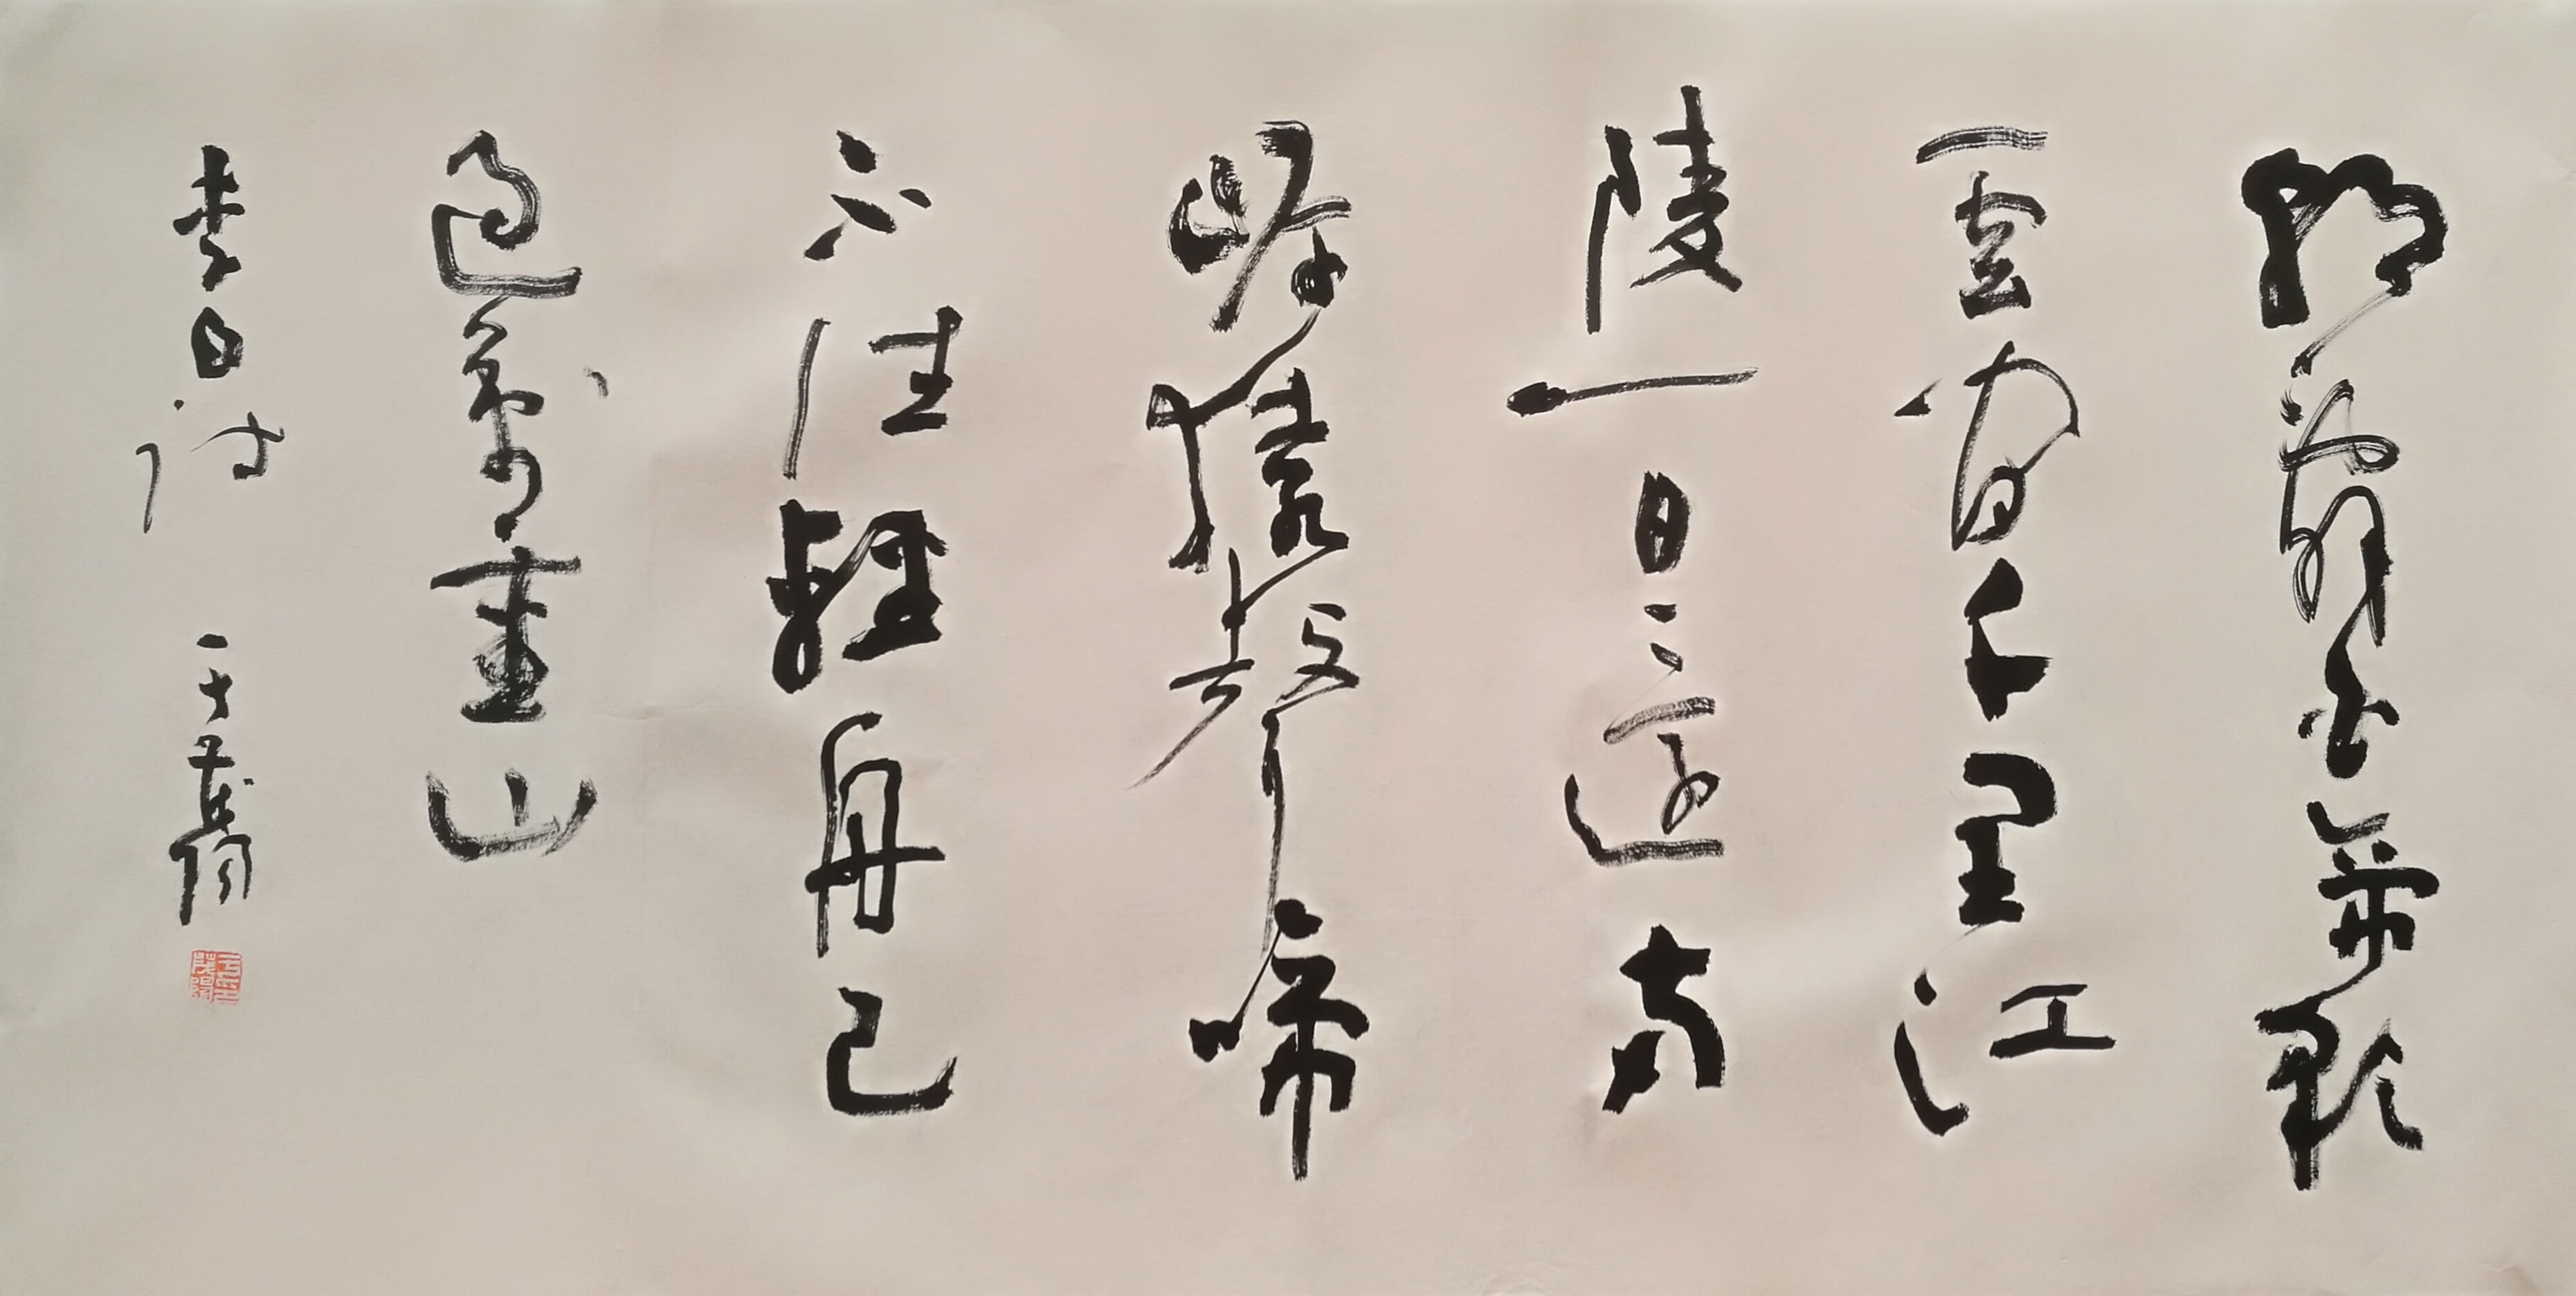 朝辭白帝彩
雲間千里江
陵一日還兩
岸猿聲啼
不住輕舟已
過萬重山
李白詩 于茂陽